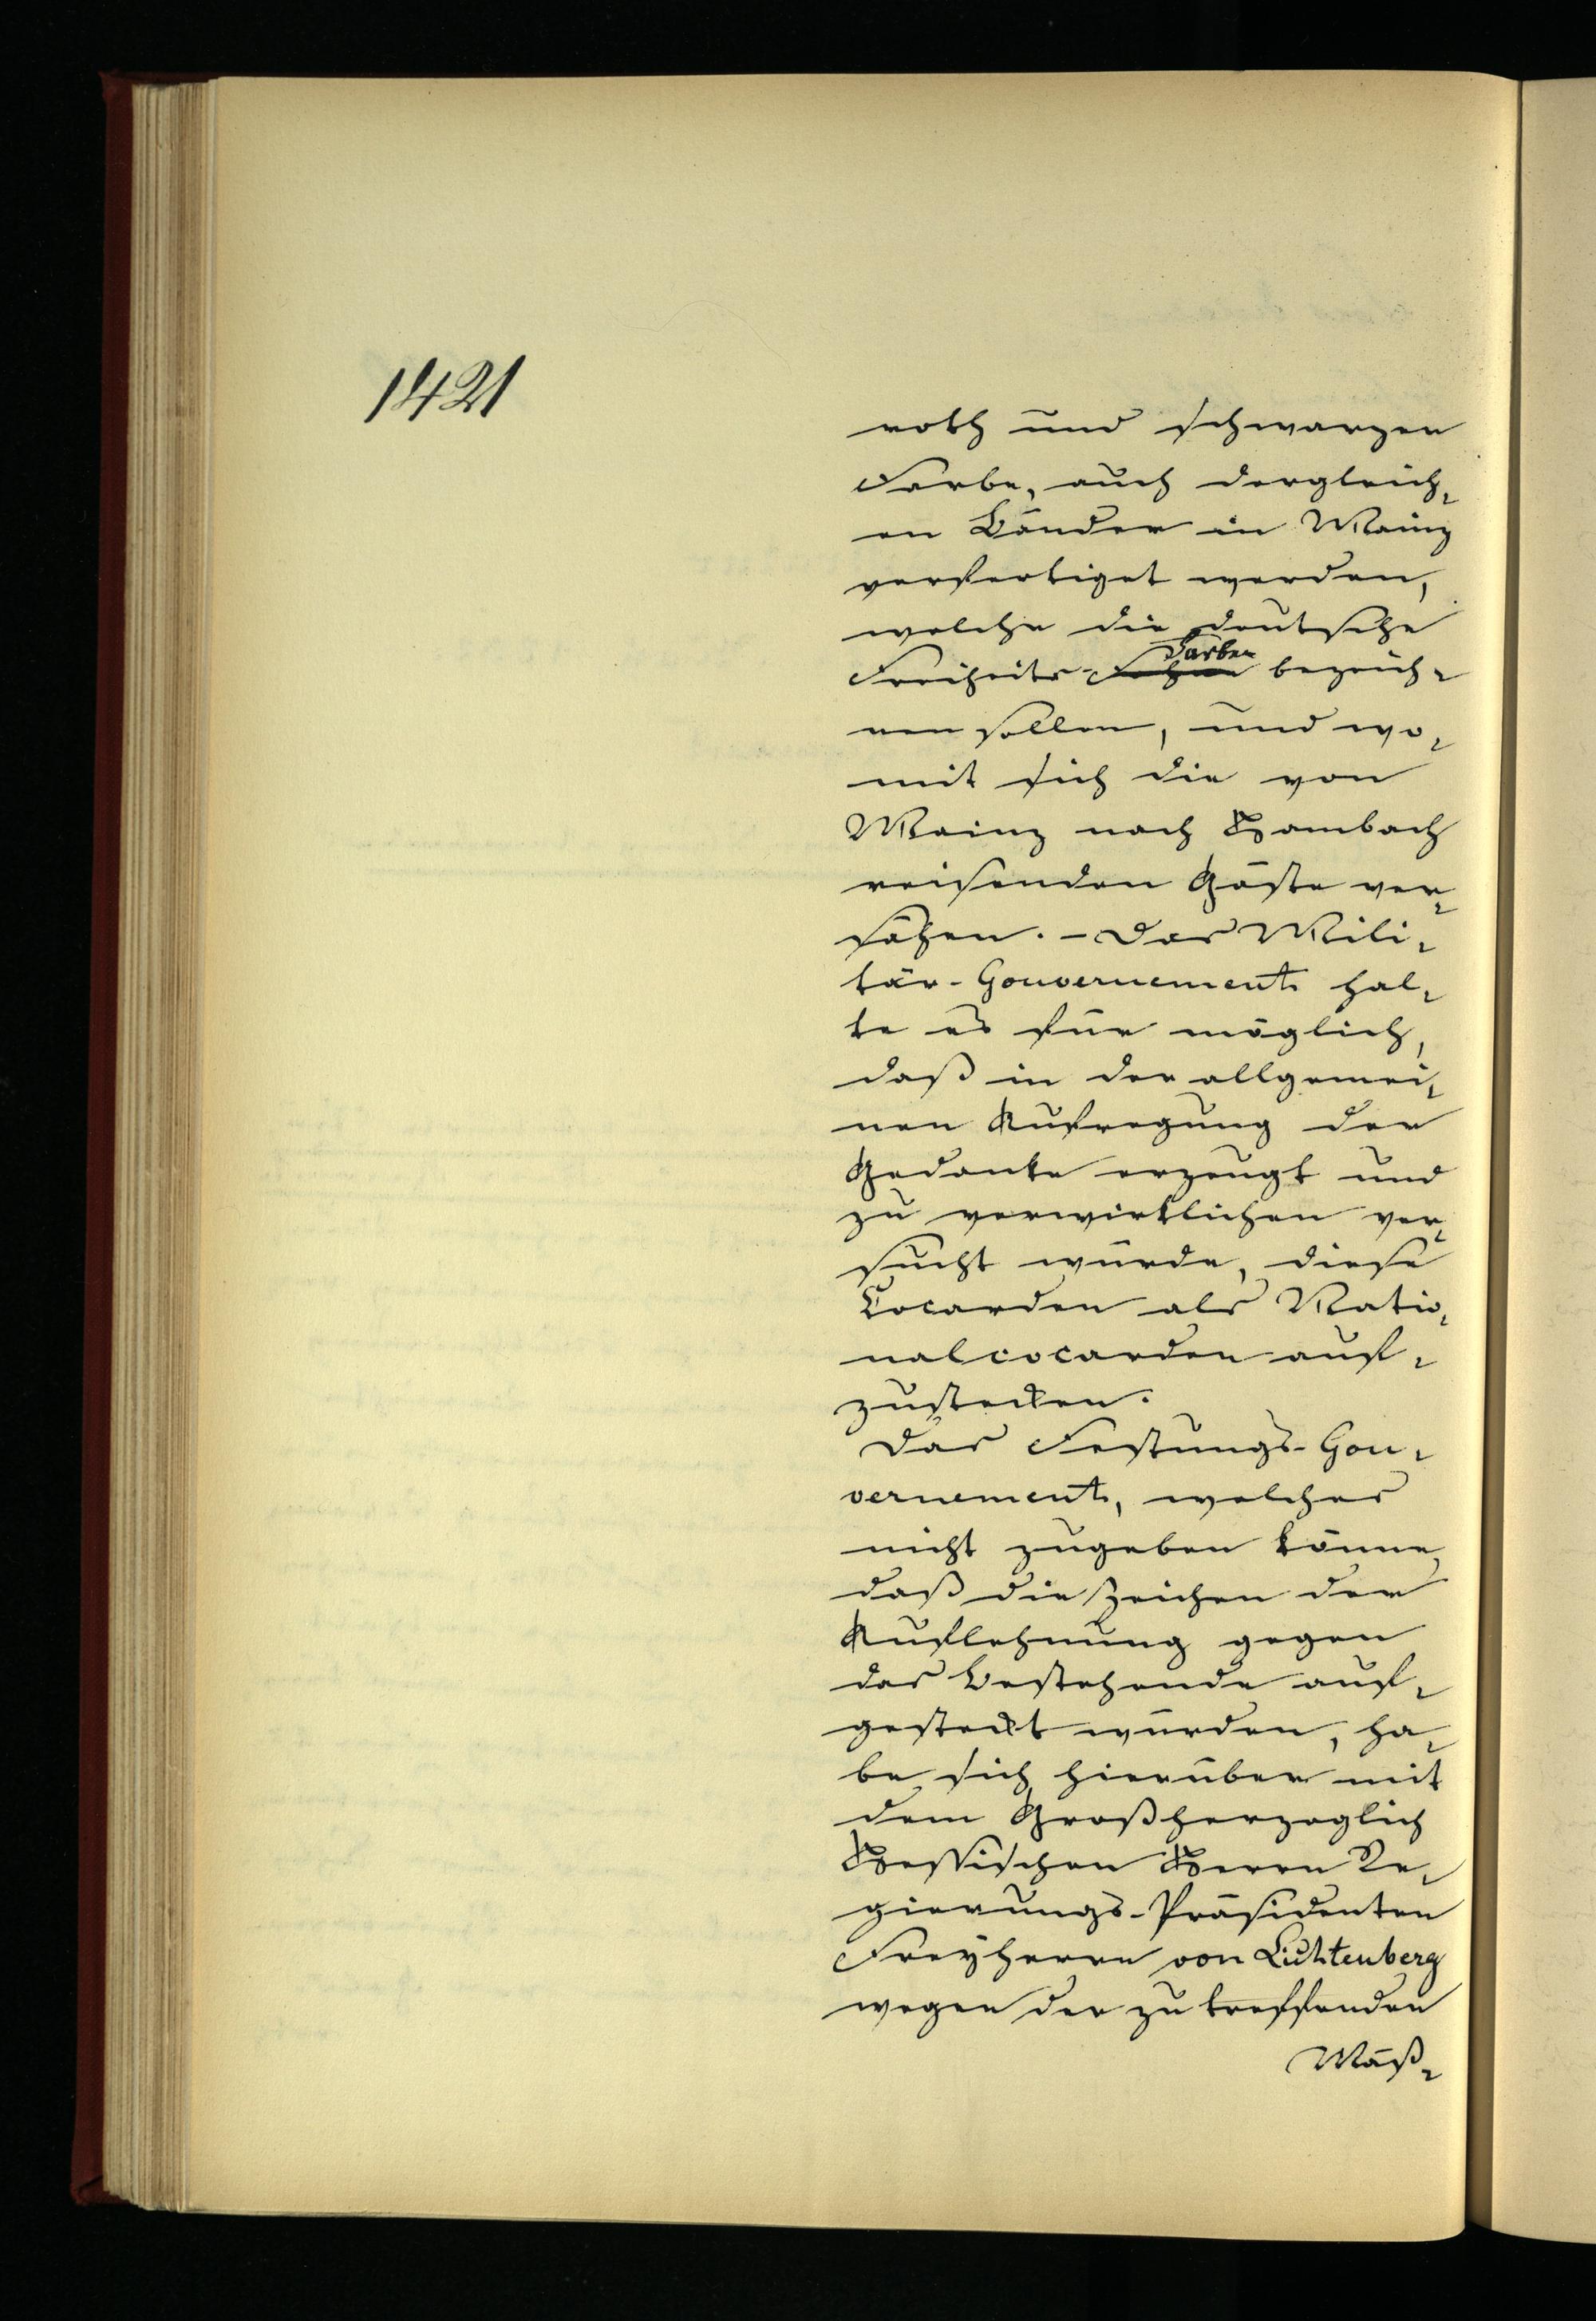 1421
roth und schwarzen
Farbe, auch dergleich,
en Bänder in Mainz
verfertiget werden,
welche die deutsche
Farben
Freiheits-Fahne bezeich,
nen sollen, und wo,
mit sich die von
Mainz nach Hambach
reisenden Gäste ver,
sähen. - Das Mili,
tär-Gouvernement hal,
te es für möglich,
daß in der allgemei,
nen Aufregung der
Gedanke erzeugt und
zu verwirklichen ver,
sucht würde, diese
Cocarden als Natio,
nalcocarden auf,
zustecken.
Das Festungs-Gou,
vernement, welches
nicht zugeben könne,
daß die Zeichen der
Auflehnung gegen
das Bestehende auf,
gesteckt würden, ha,
be sich hierüber mit
dem Großherzoglich
Hessischen Herrn Re,
gierungs-Präsidenten
Freyherrn von Lichtenberg
wegen der zu treffenden
Mäß,